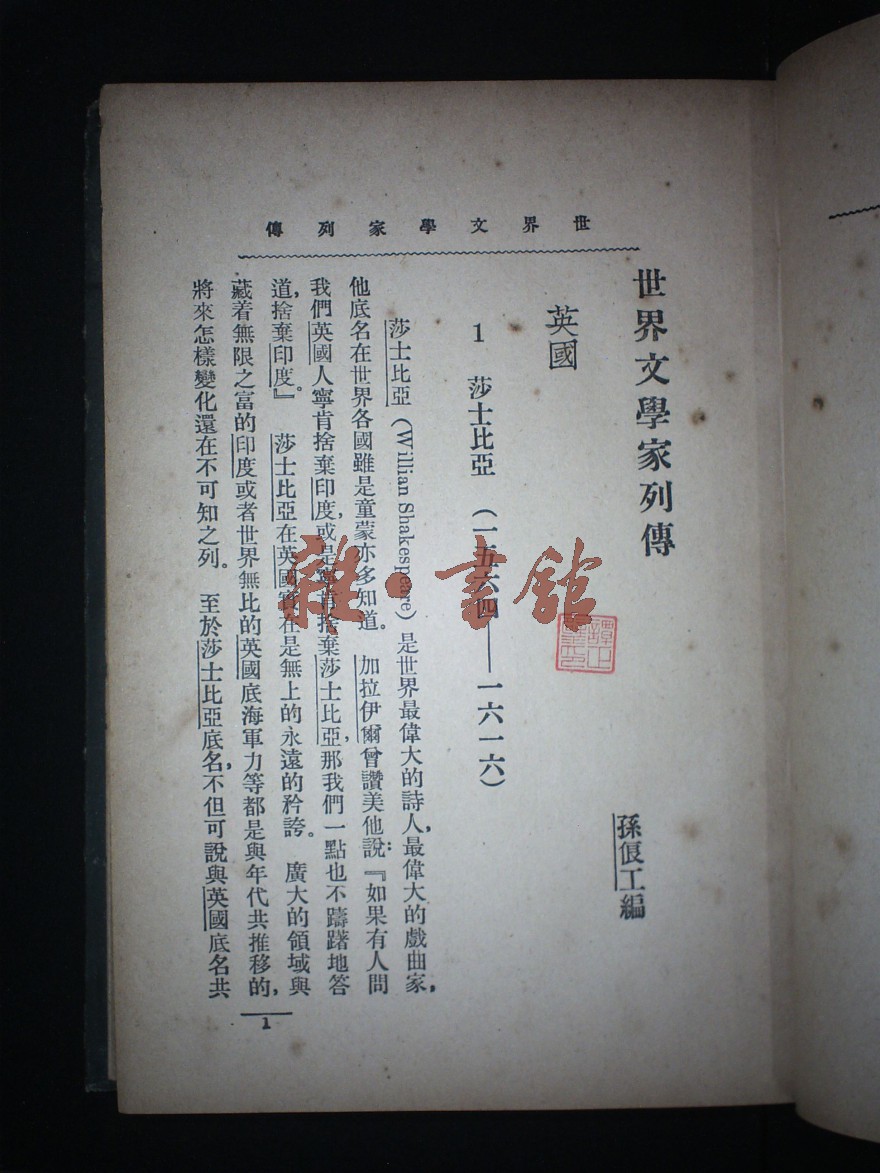 世界文學家列傳
世界文學家列傳
孫俍工編
英國
1 莎士比亞 (一五六四——一六一六)
莎士比亞 (Willian Shakespeare) 是世界最偉大的詩人,最偉大的戲曲家,
他底名在世界各國雖是童蒙亦多知道。 加拉伊爾曾讚美他說:『如果有人問
我們英國人寧肯捨棄印度,或是寧肯捨棄莎士比亞,那我們一點也不躊躇地答
道,捨棄印度。』 莎士比亞在英國實在是無上的永遠的矜誇。 廣大的領域與
藏着無限之富的印度或者世界無比的英國底海軍力等都是與年代共推移的,
將來怎樣變化還在不可知之列。 至於莎士比亞底名,不但可說與英國底名共
1
雜·書館